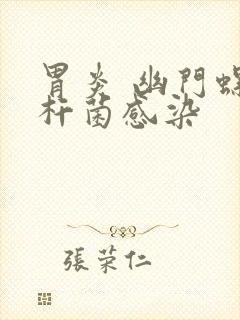 胃炎 幽門螺
杆菌感染
張荣仁